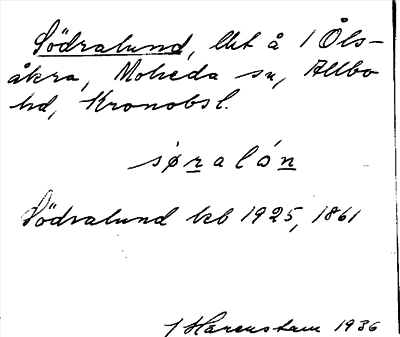 Södralund, lht å 1 Öls-
åkra, Moheda sn, Allbo
hd, Kronobsl.
søralón
Södralund kb 1925, 1861
J Harenstam 1936